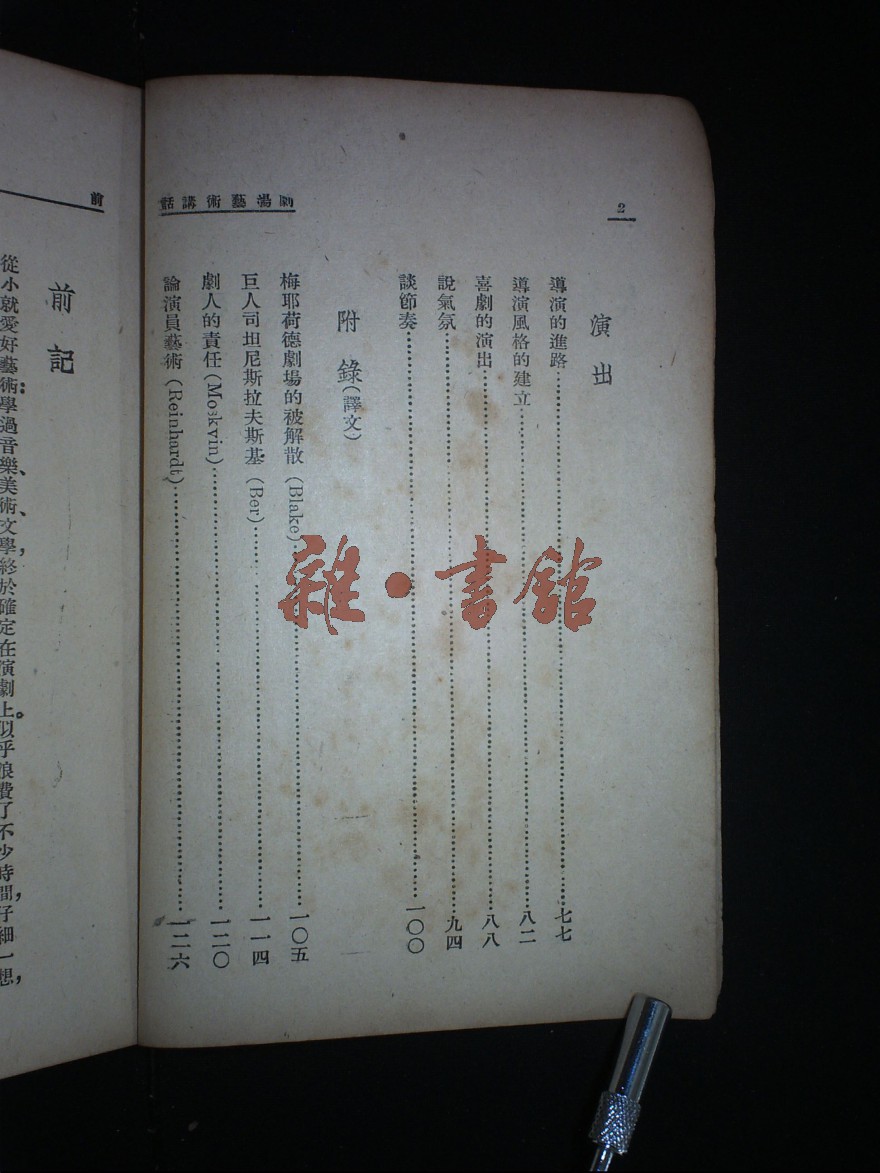 2
劇場藝術講話
演出
導演的進路⋯⋯七七
導演風格的建立⋯⋯八二
喜劇的演出⋯⋯八八
說氣氛⋯⋯九四
談節奏⋯⋯一〇〇
附錄(譯文)
梅耶荷德劇場的被解散 (Blake)⋯⋯一〇五
巨人司坦尼斯拉夫斯基 (Ber)⋯⋯一一四
劇人的責任 (Moskvin)⋯⋯一二〇
論演員藝術 (Reinhardt)⋯⋯一二六
雜·書館
前
前記
從小就愛好藝術：學過音樂、美術、文學，終於確定在演劇上。似乎浪費了不少時間，仔細一想，